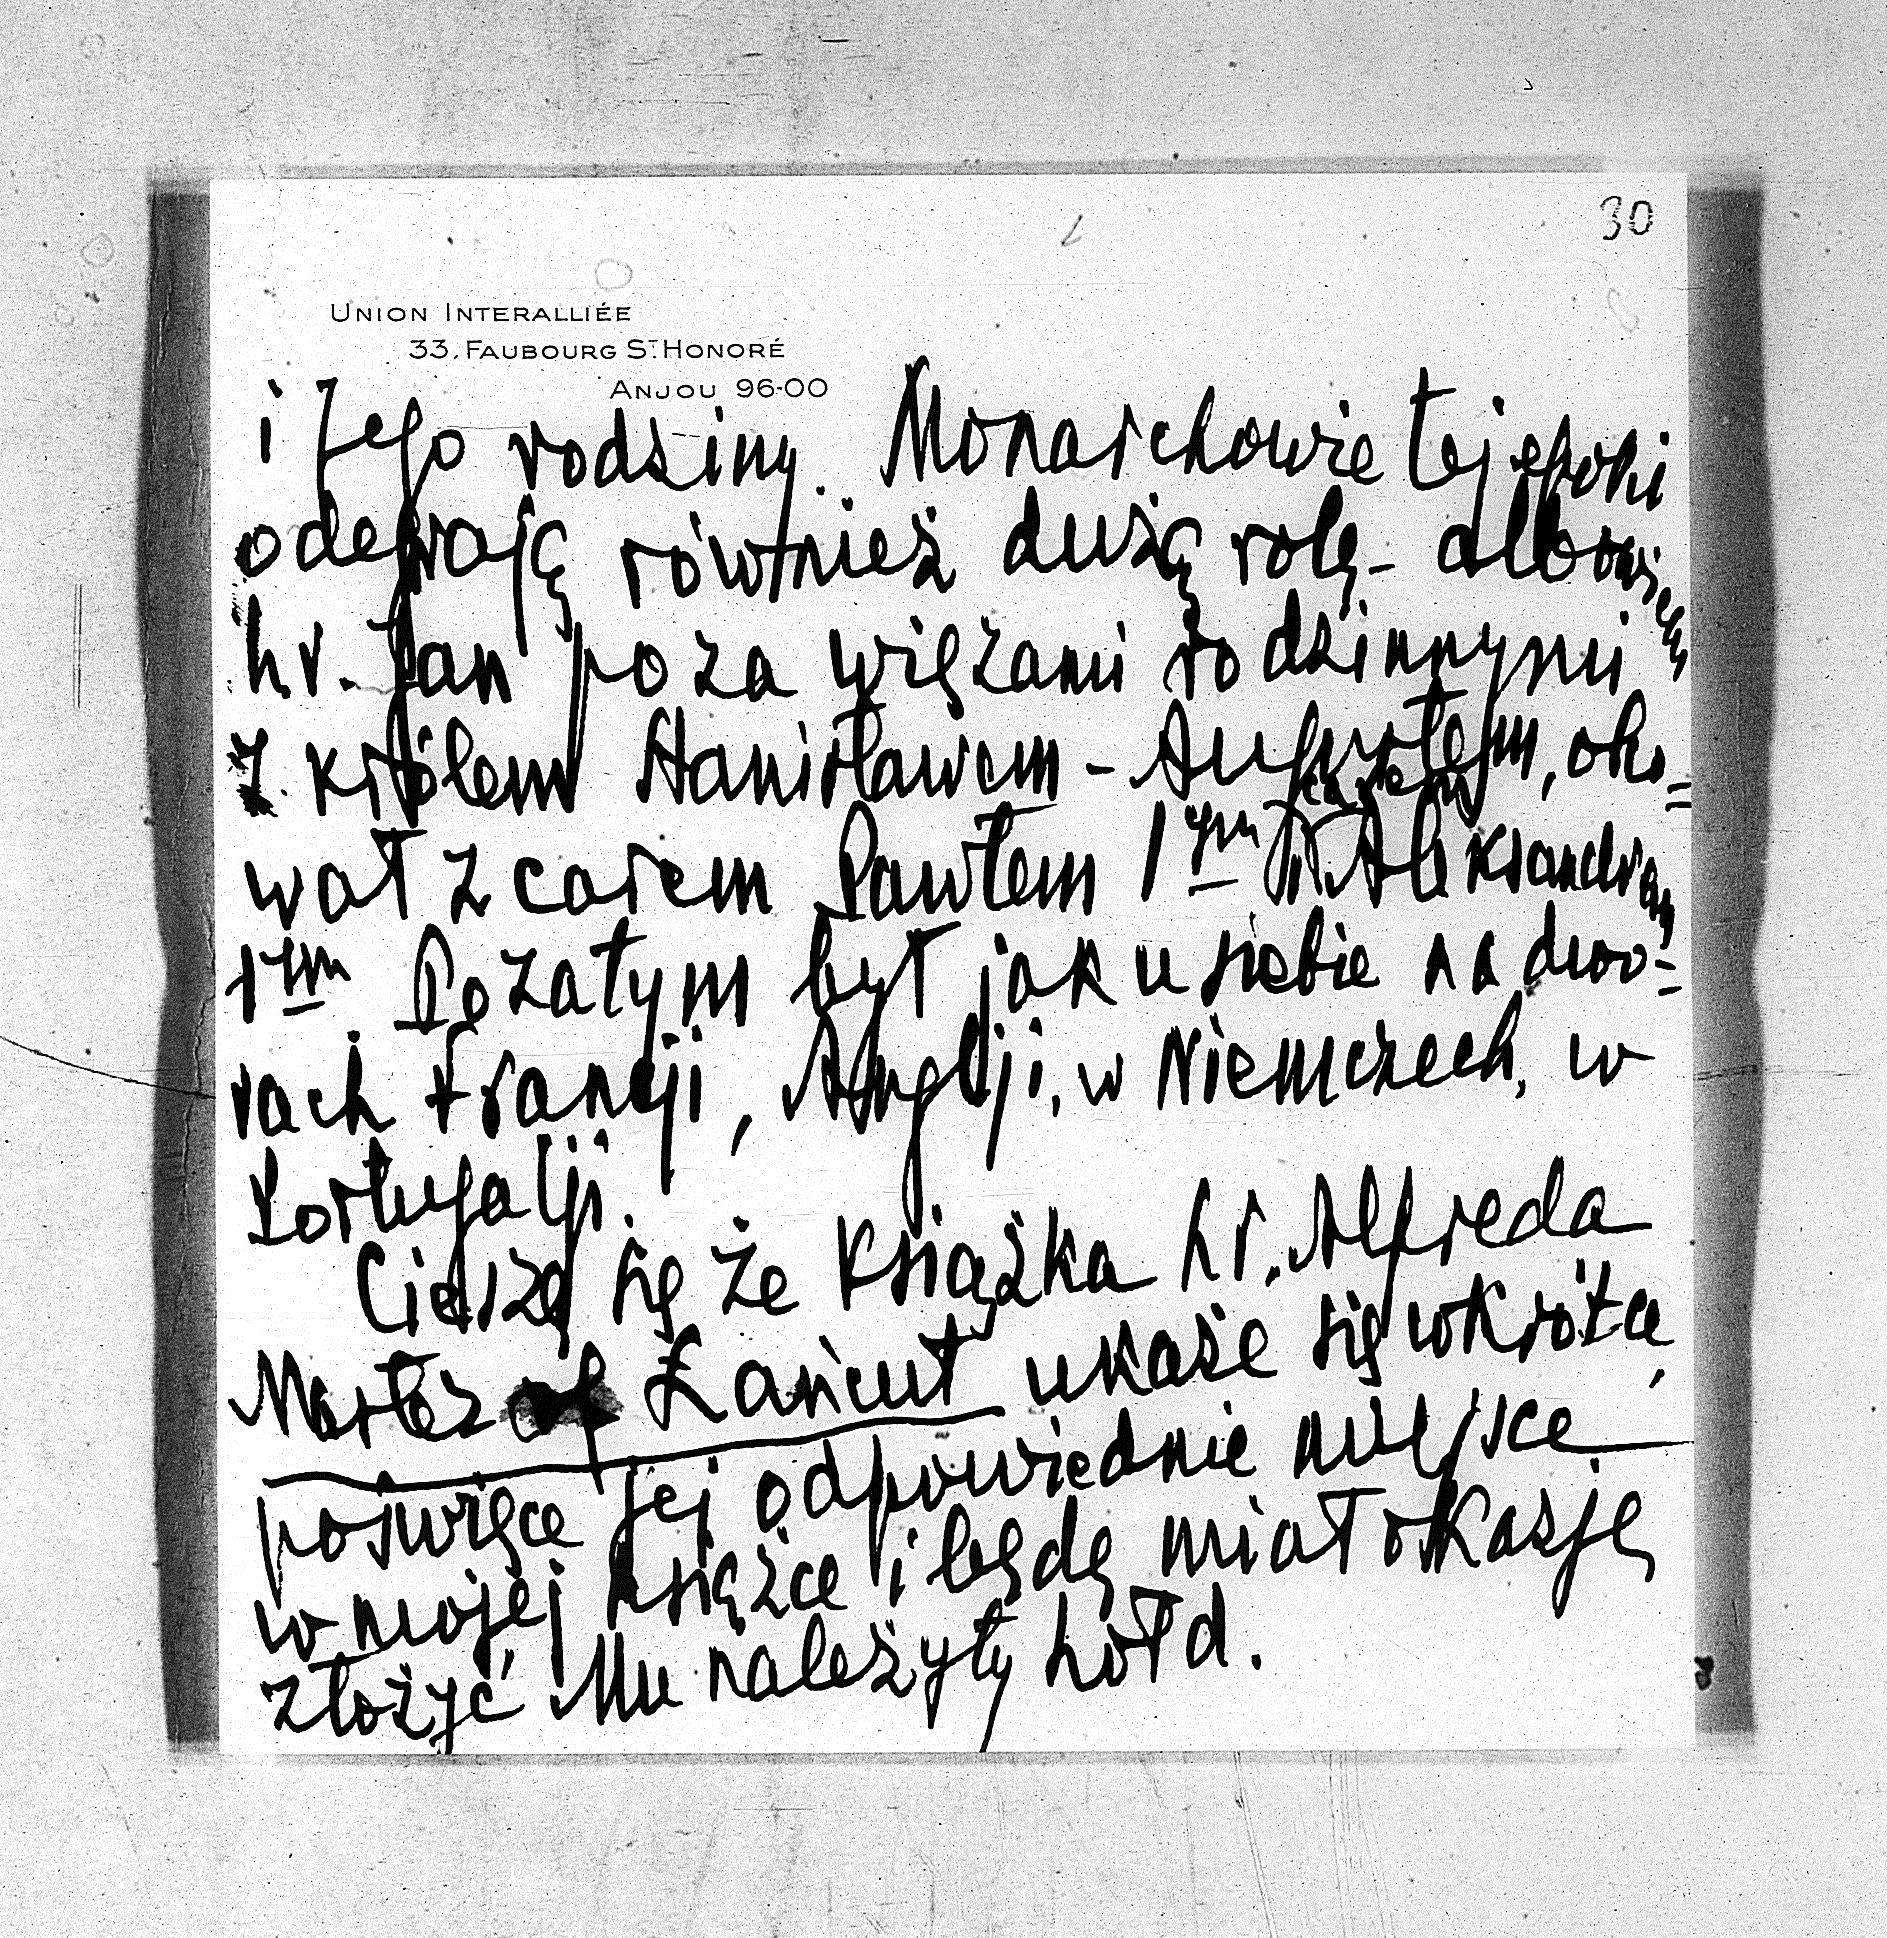 30
UNION INTERALLIÉE
33, FAUBOURG ST. HONORÉ
ANJOU 96-00
i Jego rodziny. Monarchowie tej epoki
odegrają również dużą rolę - albowiem
hr. Jan poza więzami rodzinnymi
z królem Stanisławem - Augustem, obco=
wał z carem Pawłem 1ym i carem Aleksandrem
1ym. Pozatym był jak u siebie na dwo=
rach Francji, Anglji, w Niemczech, w
Portugalji.
Cieszę się że książka hr. Alfreda
Master of Łańcut ukaże się wkrótce,
poświęcę jej odpowiednie miejsce
w mojej książce i będę miał okazję
złożyć Mu należyty hołd.